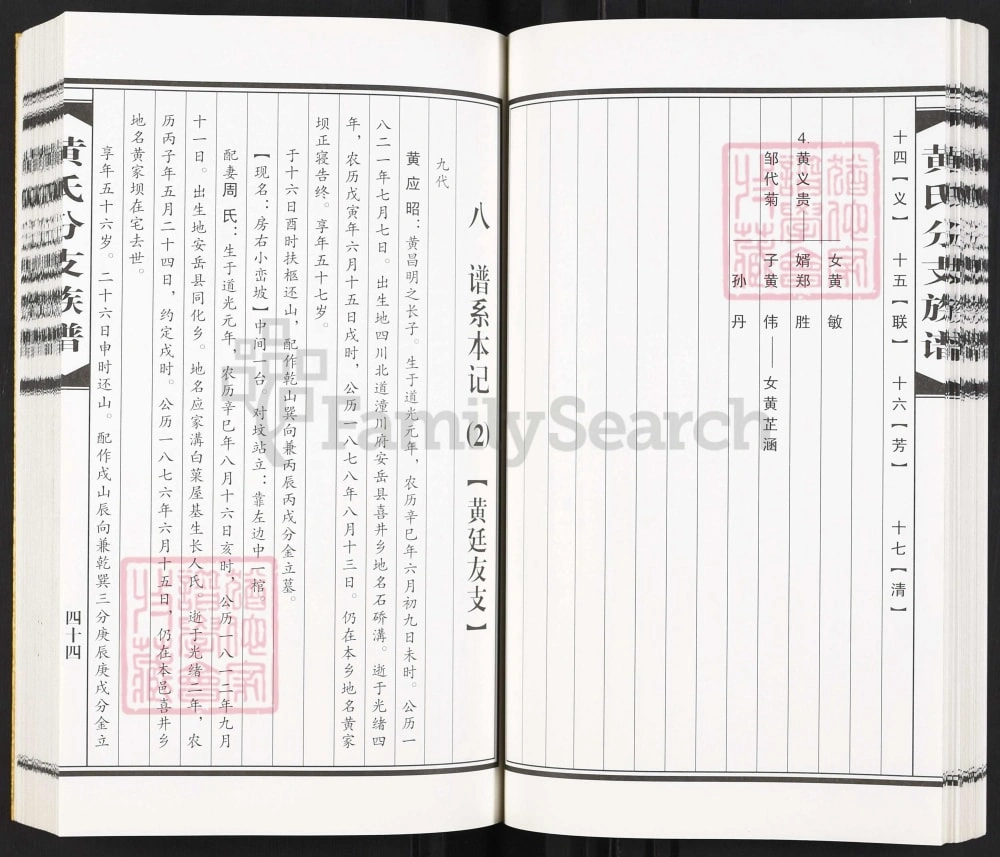 黄氏分支族谱
十四【义】 十五【联】 十六【芳】 十七【清】
女黄 敏
4.黄义贵 婿郑 胜
邹代菊 子黄 伟——女黄芷涵
孙 丹
八 谱系本记 ⑵【黄廷友支】
九代
黄应昭：黄昌明之长子。生于道光元年，农历辛巳年六月初九日未时。公历一
八二一年七月七日。出生地四川北道潼川府安岳县喜井乡地名石硚溝。逝于光绪四
年，农历戊寅年六月十五日戌时，公历一八七八年八月十三日。仍在本乡地名黄家
坝正寝告终。享年五十七岁。
于十六日酉时扶柩还山，配作乾山巽向兼丙辰丙戌分金立墓。
【现名：房右小峦坡】中间一台，对坟站立：靠左边中一棺。
配妻周氏：生于道光元年，农历辛巳年八月十六日亥时，公历一八一二年九月
十一日。出生地安岳县同化乡。地名应家溝白菓屋基生长人氏。逝于光绪二年，农
历丙子年五月二十四日，约定戌时。公历一八七六年六月十五日，仍在本邑喜井乡
地名黄家坝在宅去世。
享年五十六岁。二十六日申时还山。配作戌山辰向兼乾巽三分庚辰庚戌分金立
黄氏分支族谱
四十四
FamilySearch